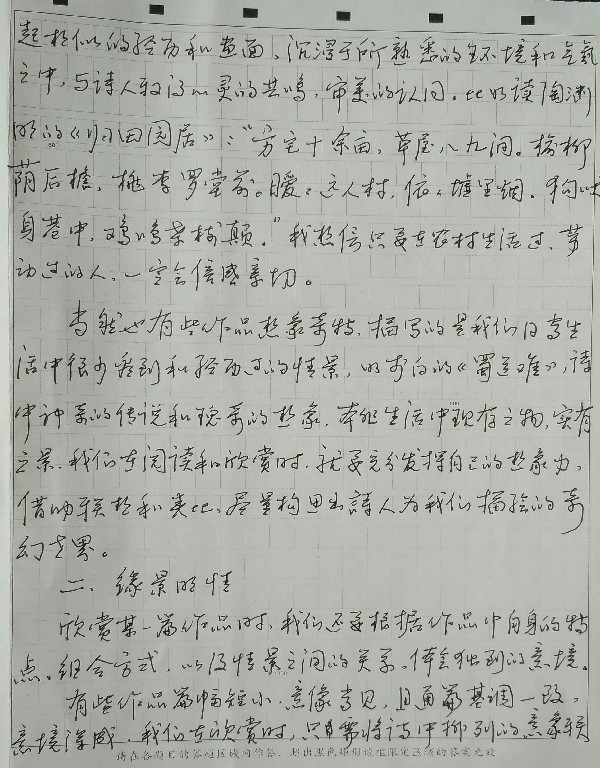 起相似的经历和画面，沉浸于所熟悉的环境和气氛
之中，与诗人取得心灵的共鸣，审美的认同。比如读陶渊
明的《归田园居》："方宅十余亩，草屋八九间。榆柳
荫后檐，桃李罗堂前。暧々远人村，依々墟里烟。狗吠
身巷中，鸡鸣桑树颠。"我想信只要在农村生活过、劳
动过的人，一定会倍感亲切。
当然也有些作品想象奇特，描写的是我们日常生
活中很少看到和经历过的情景，如李白的《蜀道难》，诗
中神奇的传说和瑰奇的想象，本非生活中现有之物，实有
之景，我们在阅读和欣赏时，就要充分发挥自己的想象力，
借助联想和类比，尽量构思出詩人为我们描绘的奇
幻世界。
二、缘景明情
欣赏某一篇作品时，我们还要根据作品中自身的特
点。组合方式，以及情景之间的关系，体会独到的意境。
有些作品篇幅短小，意像常见，且通篇基调一致，
意境浑成，我们在欣赏时，只需将诗中排列的意象联
请在各题目的答题区域内作答，超出黑色矩形边框限定区域的答案无效